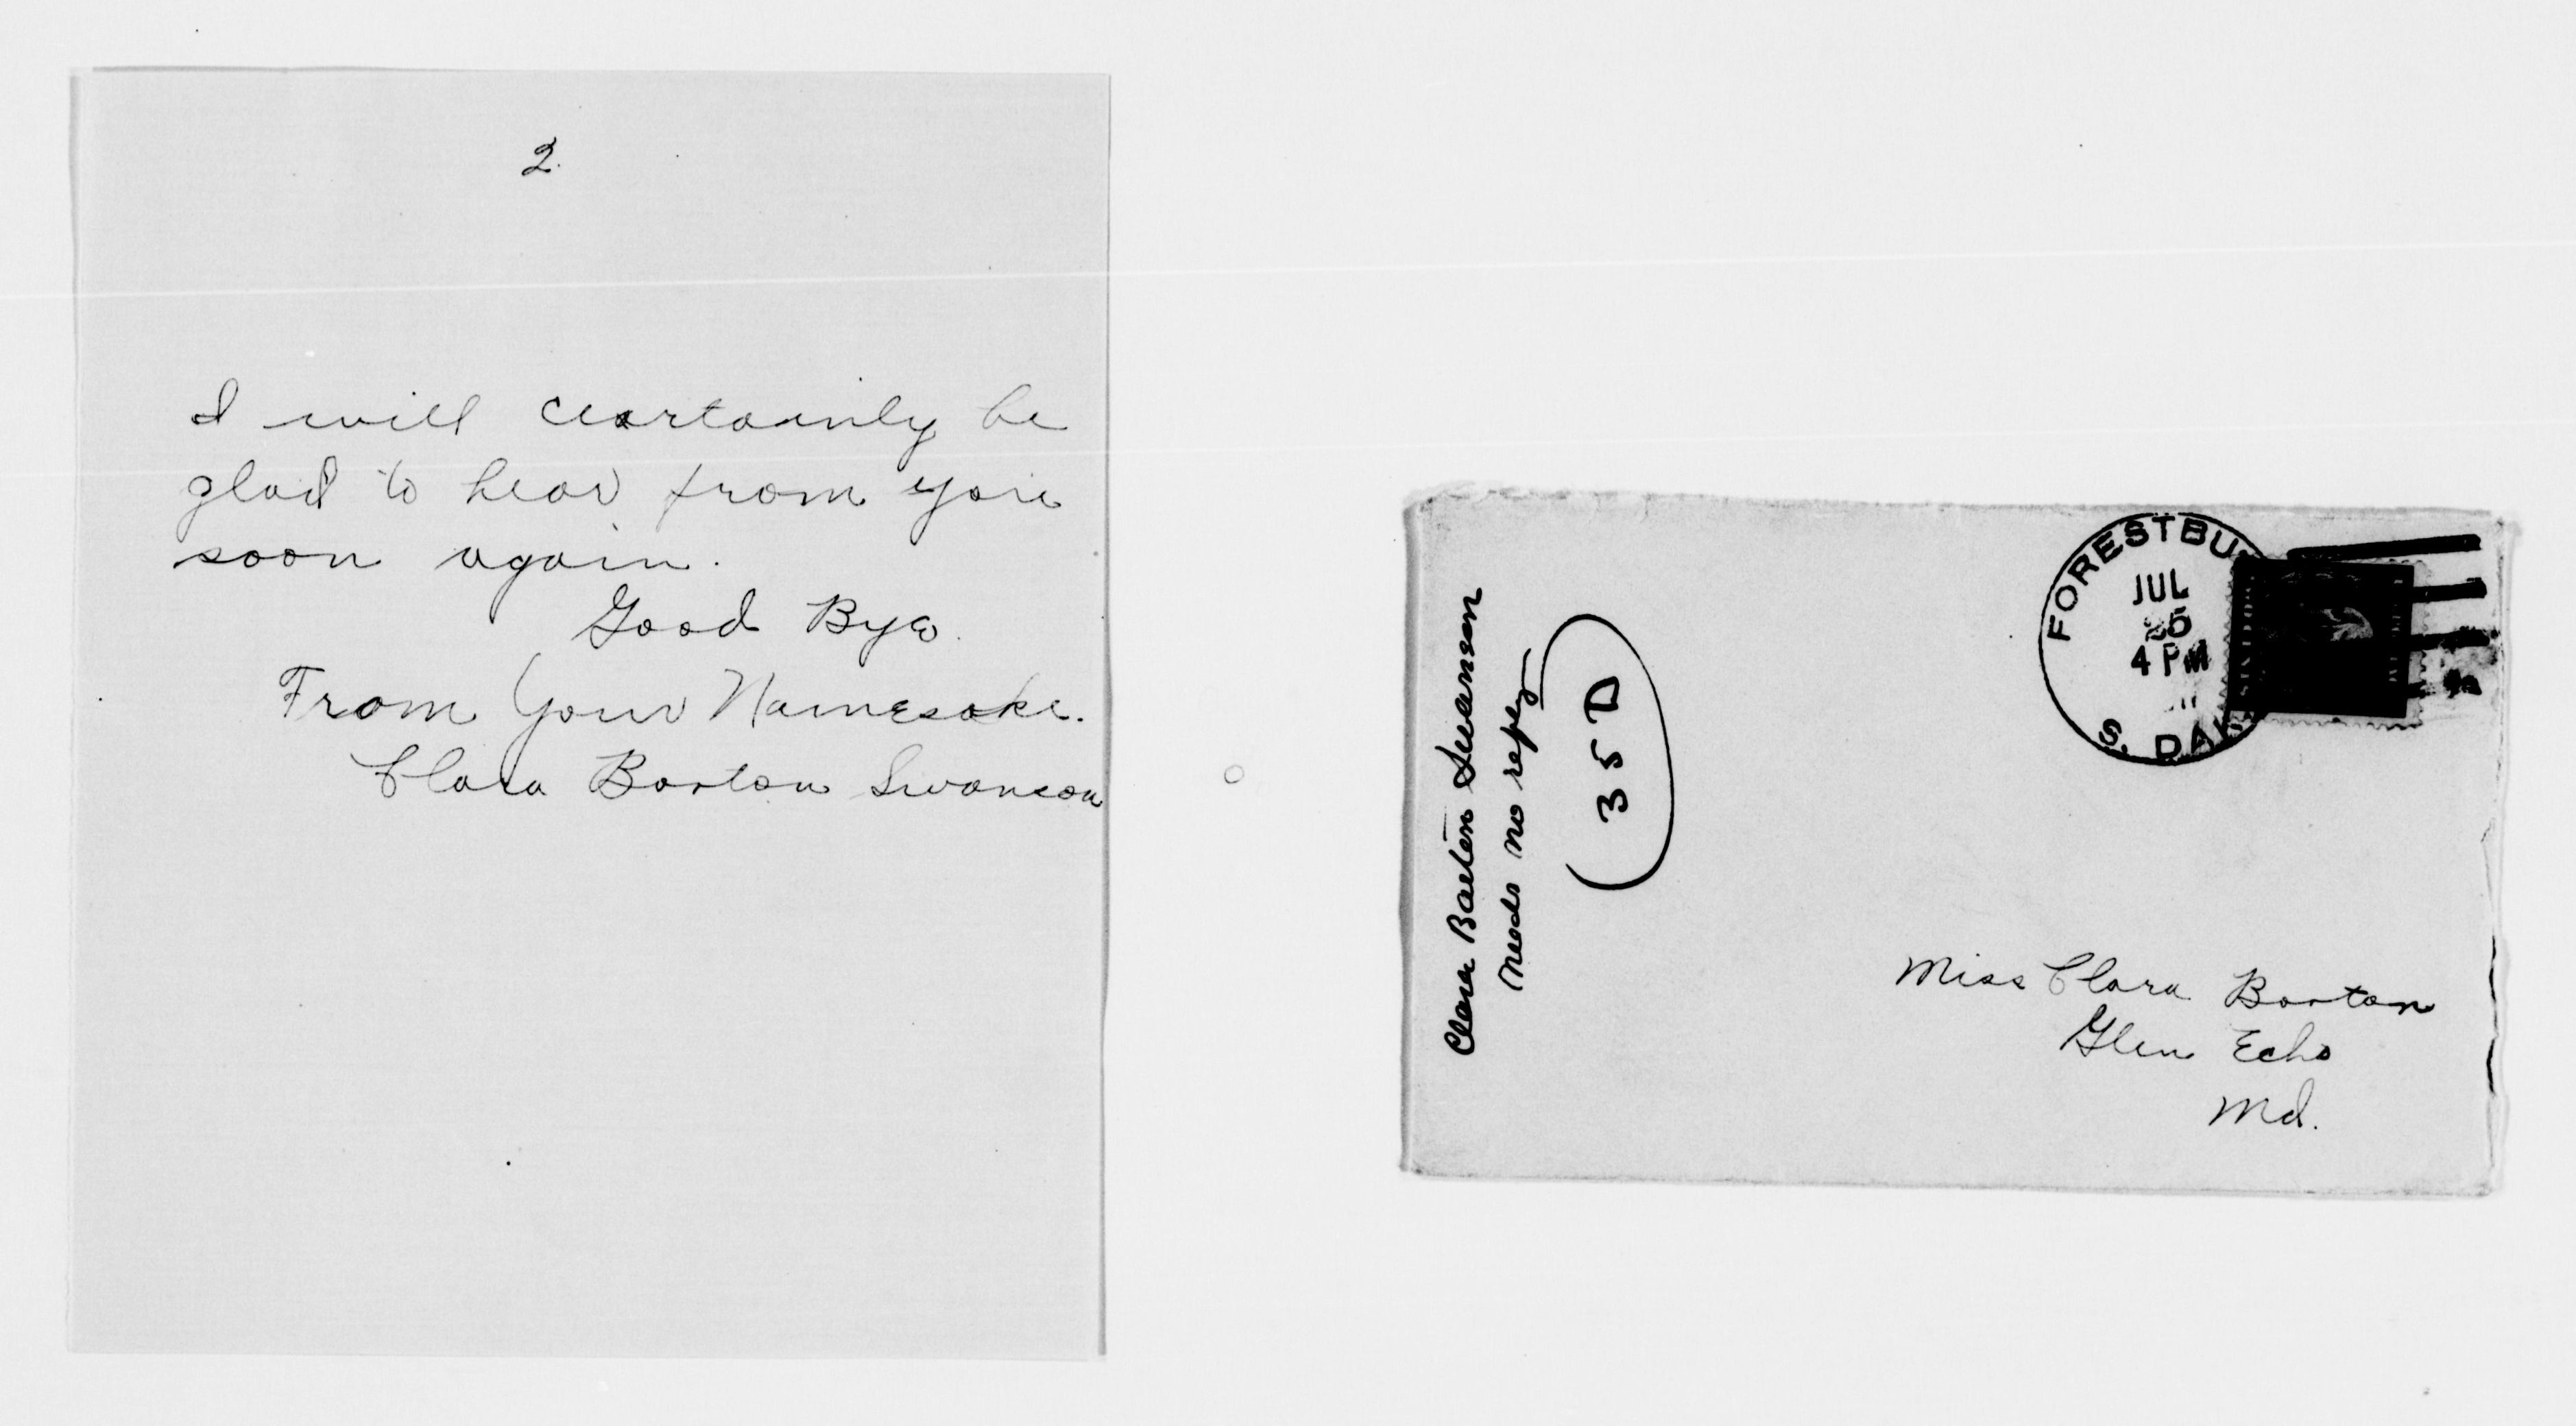 2.
I will ceartainly be
glad to hear from you
soon again.
Good Bye.
From Your Namesake.
Clara Barton Swanson
Clara Barton Swanson
needs no reply
35D
FORESTBU
JUL
25
4 PM
S. DAK
Miss Clara Barton
Glen Echo
Md.